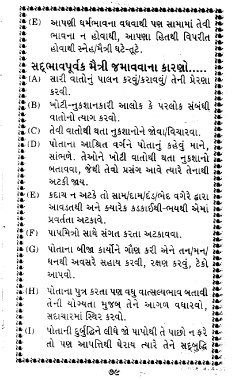 (E) આપણી ધર્મભાવના વધવાથી પણ સામામાં તેવી
ભાવના ન હોવાથી, આપણા હિતથી વિપરીત
હોવાથી સ્નેહ/મૈત્રી ઘટે-તૂટે.
સદ્ભાવપૂર્વક મૈત્રી જમાવવાના કારણો.....
(A) સારી વાતોનું પાલન કરવું/કરાવવું/ તેની પ્રેરણા
કરવી.
(B) ખોટી-નુકશાનકારી આલોક કે પરલોક સંબંધી
વાતોનો ત્યાગ કરવો.
(C) તેવી વાતોથી થતા નુકશાનોને જોવા/વિચારવા.
(D) પોતાના આશ્રિત વર્ગને પોતાનું કહેવું માને,
સાંભળે. તેઓને ખોટી વાતોથી થતા નુકશાનો
બતાવવા, જેથી તેવો પ્રસંગ આવે ત્યારે તેનાથી
અટકી જાય.
(E) કદાચ ન અટકે તો સામ/દામ/દંડ/ભેદ વગેરે દ્વારા
આવડતથી અને ક્યારેક કડકાઈથી-ભયથી એમાં
પ્રવર્તતા અટકાવે.
(F) પાપમિત્રો સાથે સંગત કરતા અટકાવવા.
(G) પોતાના બીજા કાર્યોને ગૌણ કરી એને તન/મન/
ધનથી અવસરે સહાય કરવી, રક્ષણ કરવું, ટેકો
આપવો.
(H) પોતાના પુત્ર કરતા પણ વધુ વાત્સલ્યભાવ બતાવી
તેની યોગ્યતા મુજબ તેને આગળ વધારવો,
સદાચારમાં સ્થિર કરવો.
(I) પોતાની દુર્બુદ્ધિને લીધે જો પાપોથી તે પાછો ન ફરે
તો પણ આપત્તિથી ઘેરાય ત્યારે તેને સદ્બુદ્ધિ
૭૯